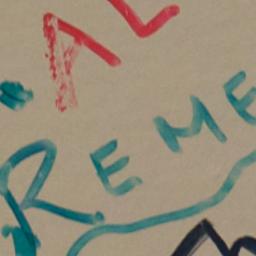 AL
REME